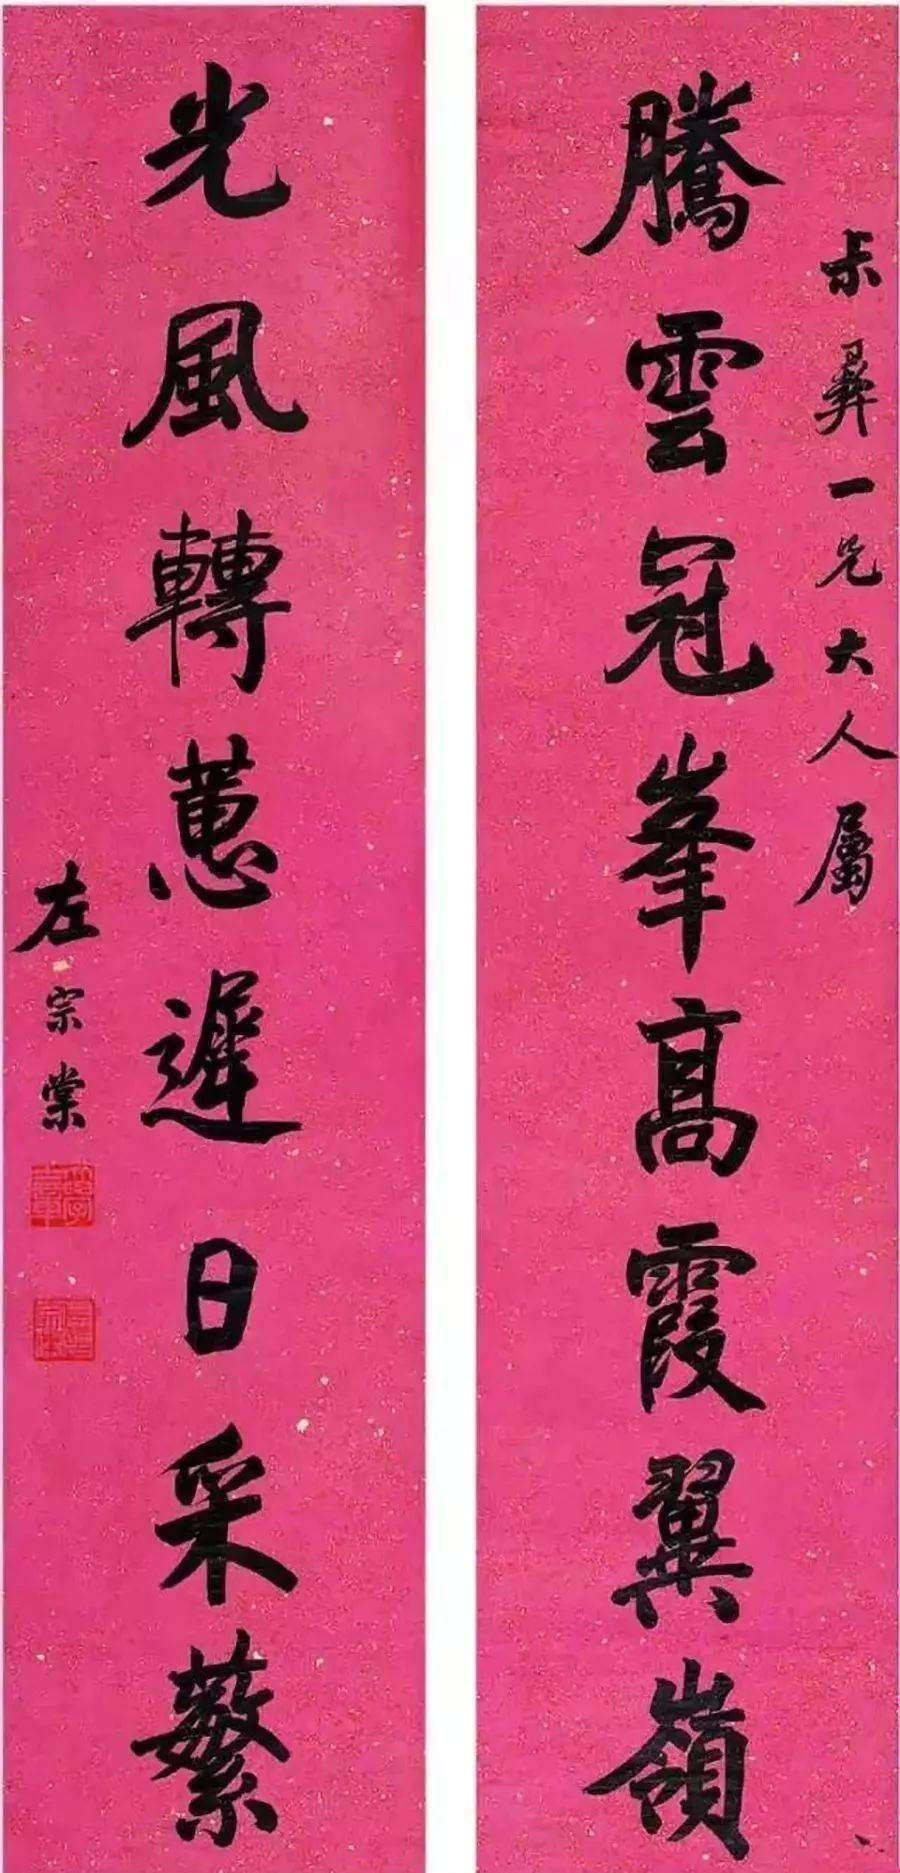 尗彝一兄大人屬
騰雲冠峯髙霞翼嶺
光風轉蕙遲日采蘩
左宗棠